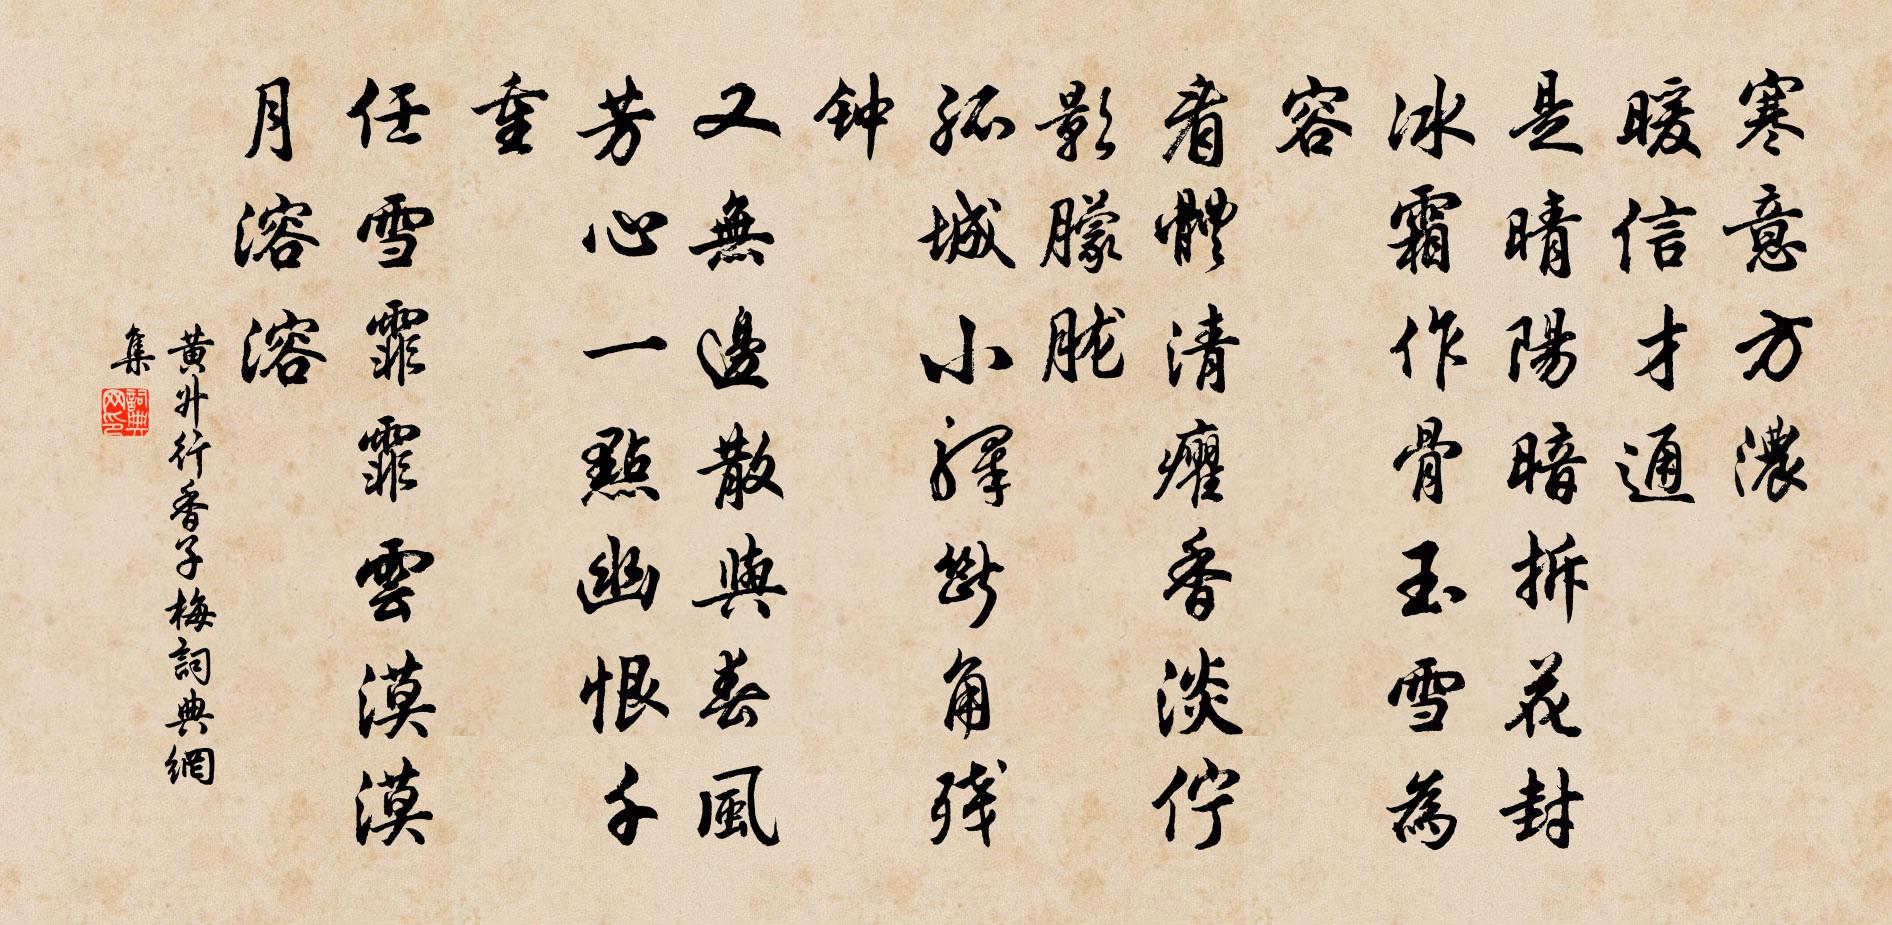 寒意方濃
暖信才通
是晴陽暗拆花封
冰霜作骨玉雪為
容
看體清癯香淡佇
影朦朧
孤城小驛斷角残
钟
又無邊散與春風
芳心一點幽恨千
重
任雪霏霏雲漠漠
月溶溶
黄升行香子梅詞典網
集
詞典
网印